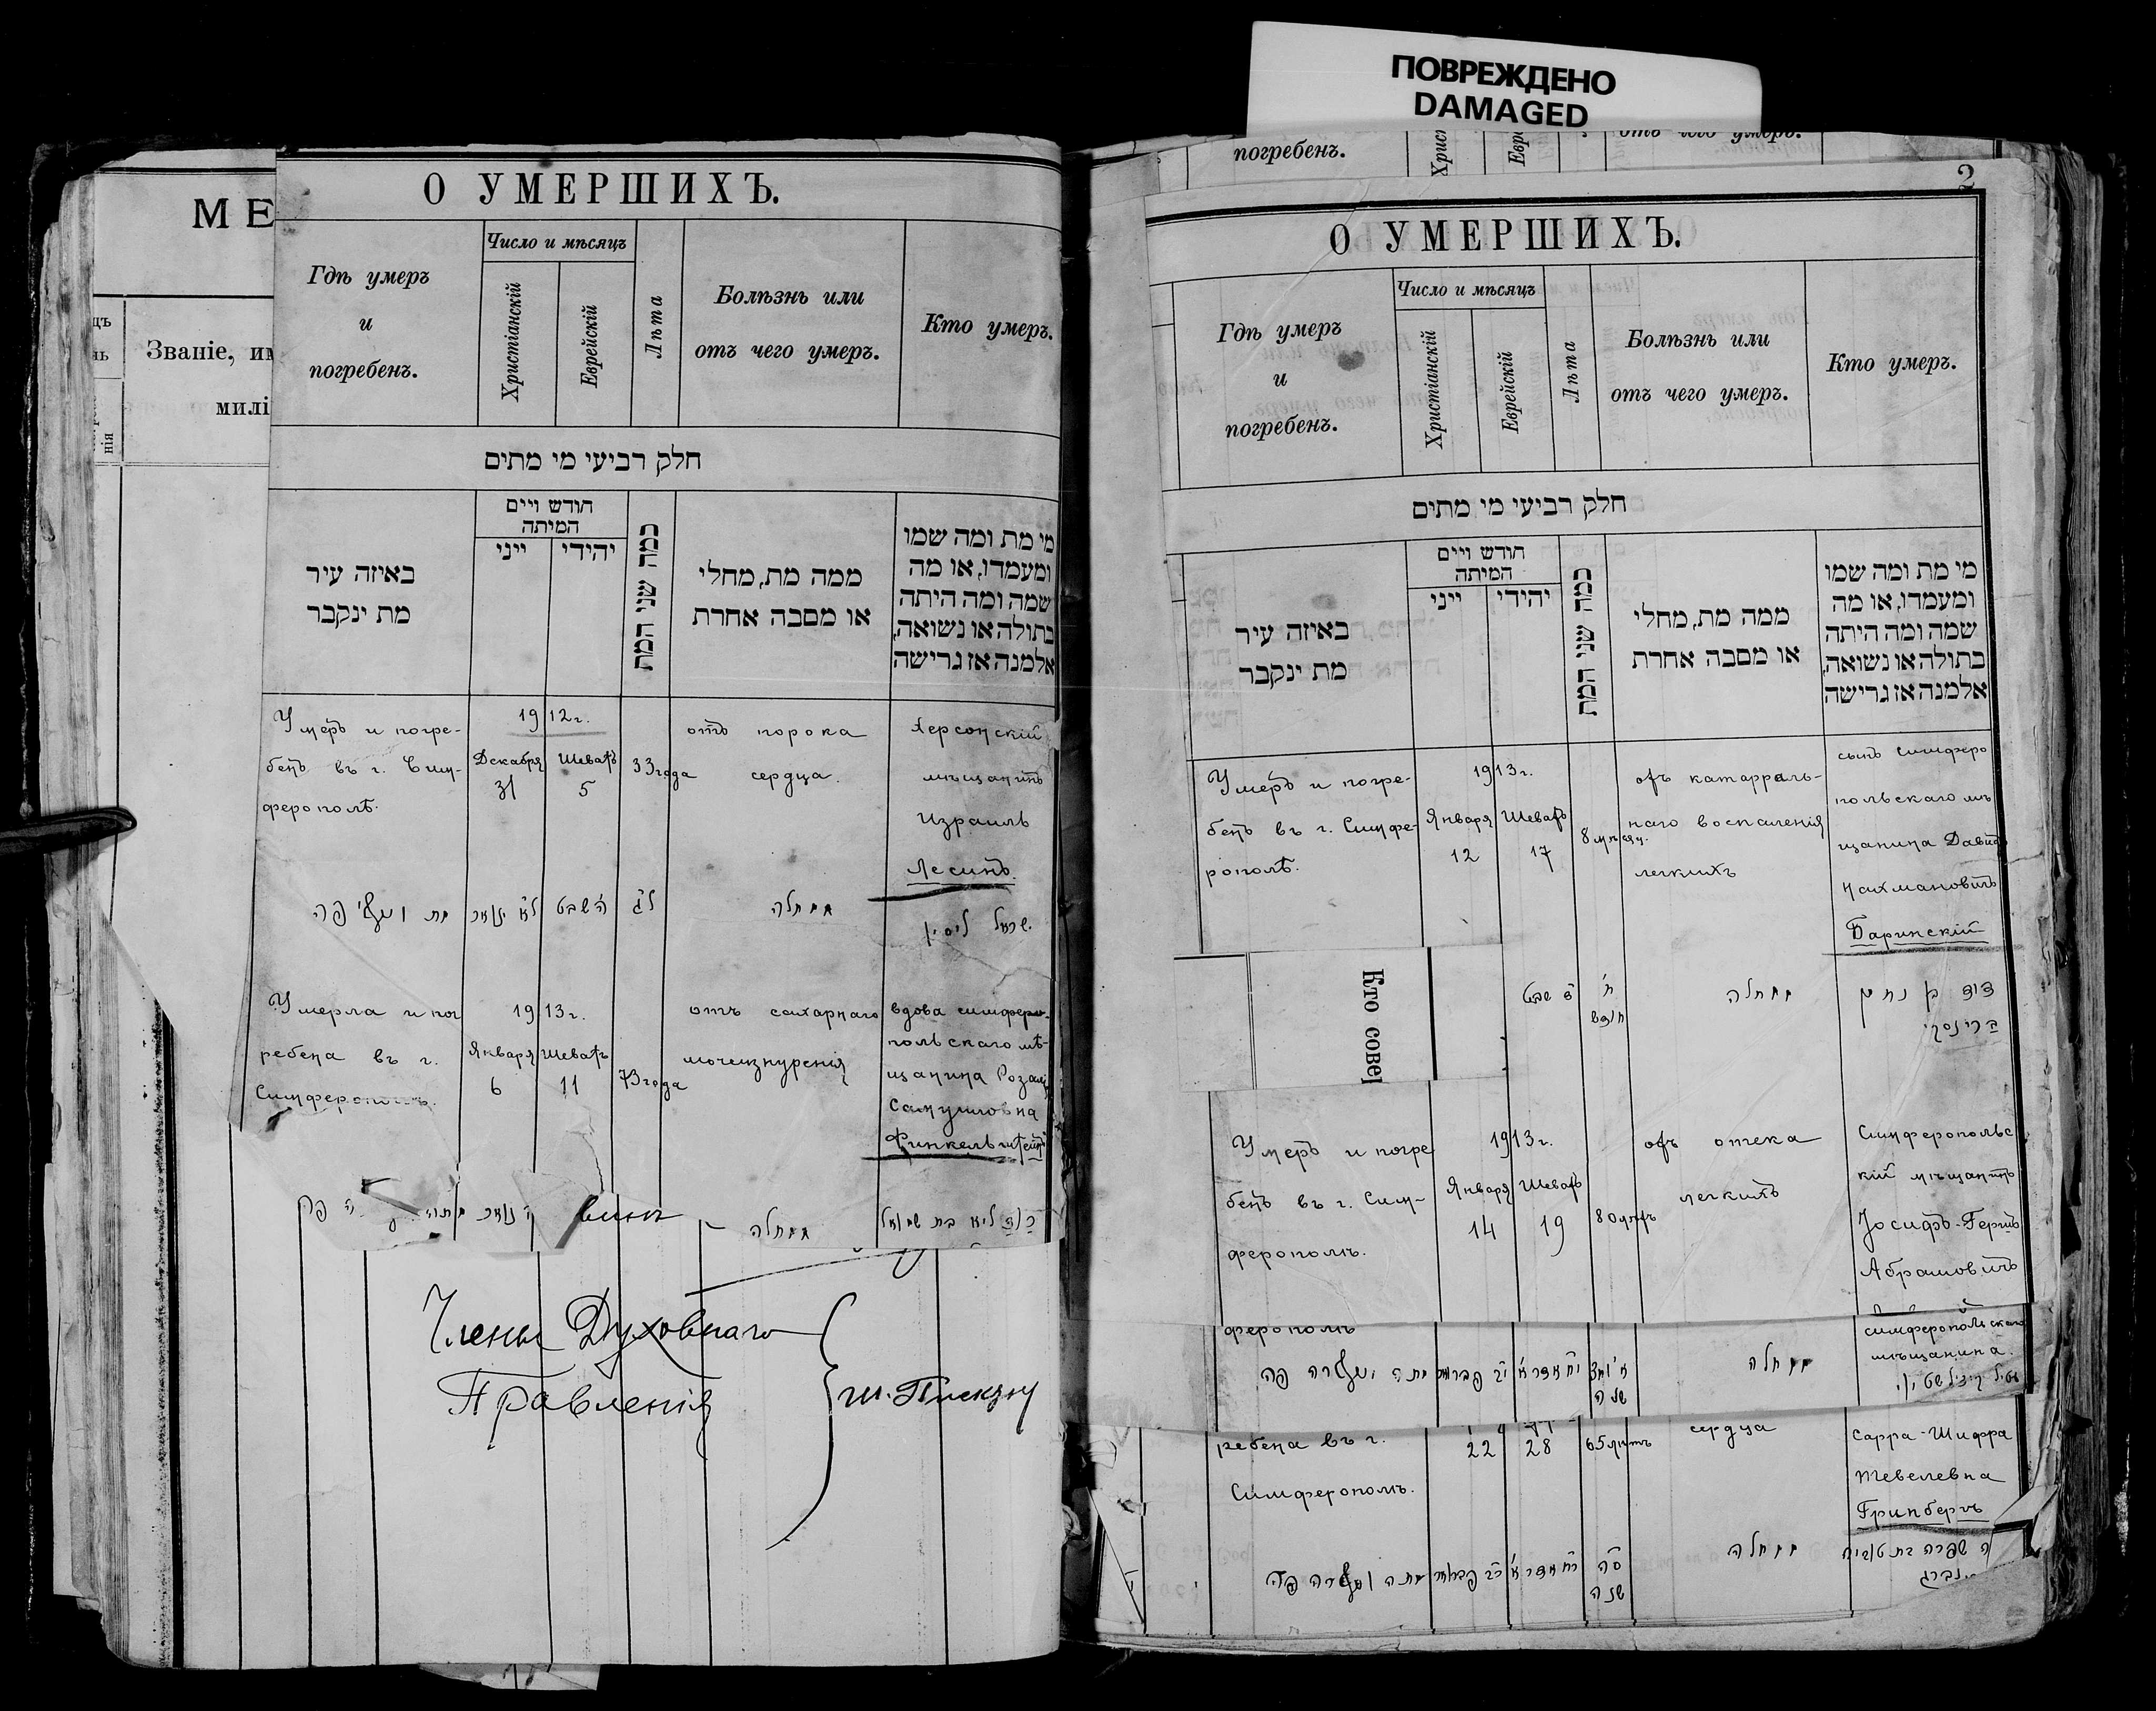 ПОВРЕЖДЕНО
DAMAGED
МЕ
Званіе, им
милі
нія
О УМЕРШИХЪ.
Гдѣ умеръ
и
погребенъ.
Число и мѣсяцъ
Христіанскій
Еврейскій
Лѣта
Болѣзнь или
отъ чего умеръ.
Кто умеръ.
חלק רביעי מי מתים
באיזה עיר
מת ינקבר
חודש ויים
המיתה
ייני
יהידי
כמה שני המת
ממה מת, מחלי
או מסבה אחרת
מי מת ומה שמו
ומעמדו, או מה
שמה ומה היתה
בתולה או נשואה,
אלמנה אז גרישה
Умеръ и погре-
бенъ въ г. Сим-
ферополѣ.
1912 г.
Декабря
31
Шеватъ
5
33 года
отъ порока
сердца.
Херсонскій
мѣщанинъ
Израиль
Лесинъ.
פה
ה שבט
ל״ג
מחלה
ישראל ליסין
Умерла и пог
ребена въ г.
Симферополѣ.
1913 г.
Января
6
Шеватъ
11
73 года
отъ сахарнаго
мочеизнуренія
вдова симферо-
польскаго мѣ-
щанина
Самуиловна
Финкельштейнъ
פה
מחלה
בת שמואל
Члены Духовнаго
Правленія
погребенъ.
Хрис
Евре
отъ чего умеръ.
2
О УМЕРШИХЪ.
Гдѣ умеръ
и
погребенъ.
Число и мѣсяцъ
Христіанскій
Еврейскій
Лѣта
Болѣзнь или
отъ чего умеръ.
Кто умеръ.
חלק רביעי מי מתים
באיזה עיר
מת ינקבר
חודש ויים
המיתה
ייני
יהידי
כמה שני המת
ממה מת, מחלי
או מסבה אחרת
מי מת ומה שמו
ומעמדו, או מה
שמה ומה היתה
בתולה או נשואה,
אלמנה אז גרישה
Умеръ и погре-
бенъ въ г. Симфе-
рополѣ.
1913 г.
Января
12
Шеватъ
17
8 мѣсяц.
отъ катарраль-
наго воспаленія
легкихъ
сынъ симферо
польскаго мѣ
щанина Давидъ
Нахмановичъ
Баринскій
Кто совер
שבט
מחלה
דוד בן נחמן
ברינסקי
Умеръ и погре
бенъ въ г. Сим-
ферополѣ.
1913 г.
Января
14
Шеватъ
19
80 лѣтъ
отъ отека
легкихъ
Симферопольс
кій мѣщанинъ
Іосифъ-Гершъ
Абрамовичъ
ферополѣ
симферопольскаго
мѣщанина.
פה
שנה
מחלה
ребена въ г.
Симферополѣ.
22
28
65 лѣтъ
сердца
Сарра-Шифра
Тевелевна
Гринбергъ
פה
ס״ה
שנה
מחלה